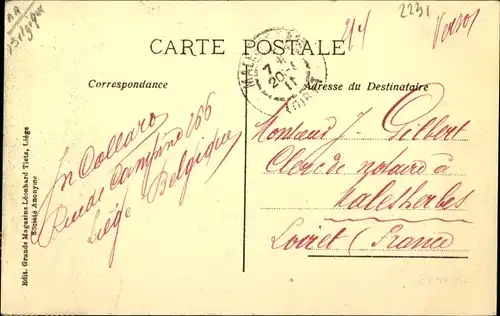 AA
Belgique
214
2231
Versos
CARTE POSTALE
Correspondance
Adresse du Destinataire
7
20
11
J. Collard
Rue de Campine 266
Liége Belgique
Monsieur J. Gilbert
Clerc de notaire à
Malesherbes
Loiret (France)
Edit. Grands Magasins Léonhard Tietz, Liége
Société Anonyme